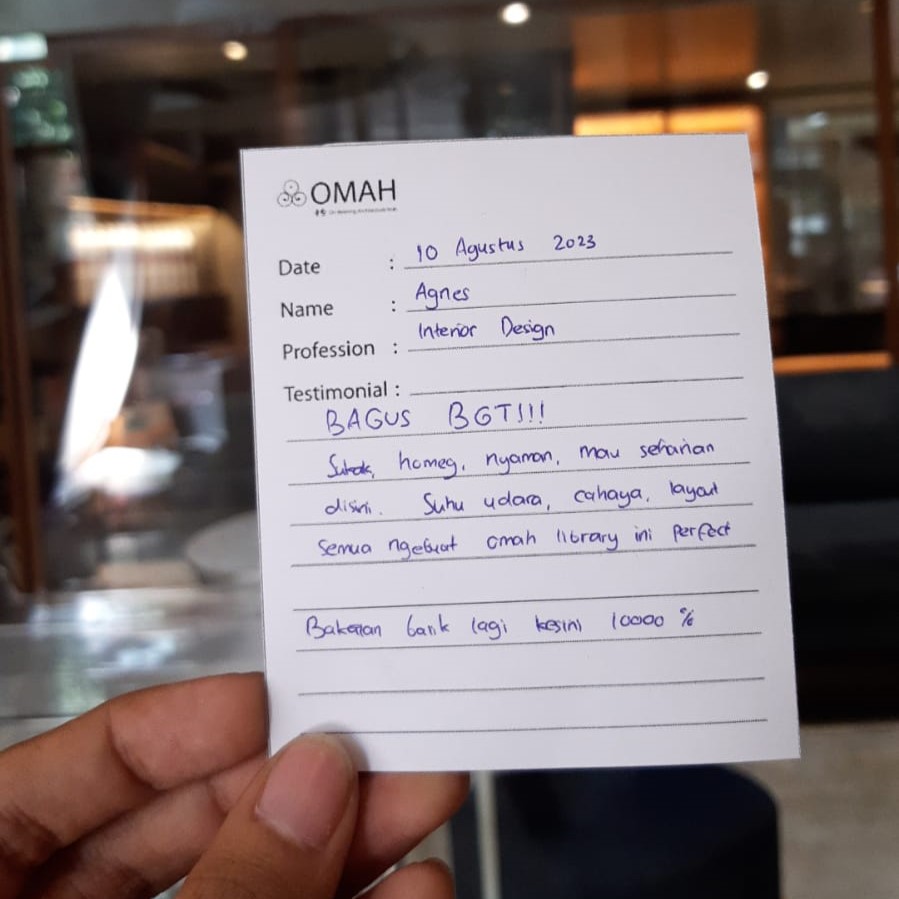 OMAH
Date : 10 Agustus 2023
Name : Agnes
Profession : Interior Design
Testimonial :
BAGUS BGT!!!
Sukak, homeg, nyaman, mau seharian
disini. Suhu udara, cahaya, layout
Semua ngebuat omah library ini perfect
Bakalan balik lagi kesini 10000 %